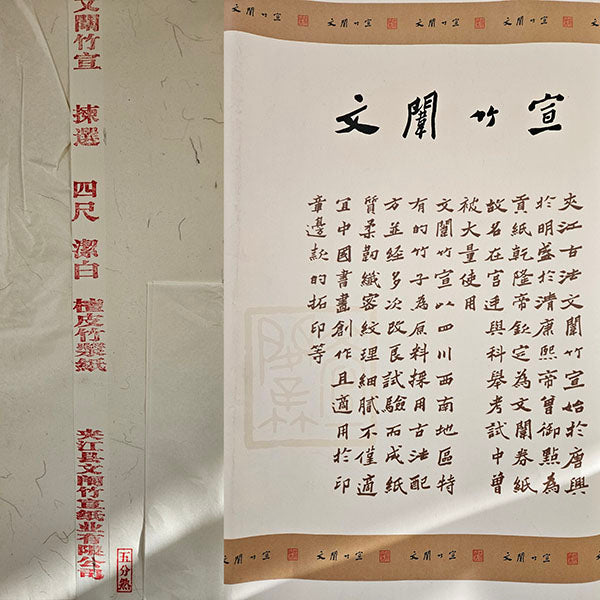 文闈竹宣 揀選 四尺 潔白 檀皮竹漿紙 夹江县文闱竹宣纸业有限公司
五分熟
文闈竹宣 文闈竹宣 文闈竹宣 文闈竹宣
文闈竹宣
夾江古法文闈竹宣始於唐興
於明盛於清康熙帝曾御點為
貢紙乾隆帝欽定為文闈卷紙
故名在宮廷與科舉考試中曾
被大量使用
文闈竹宣以四川西南地區特
有的竹子為原料採用古法配
方並經多次改良試驗而成紙
質柔韌纖密紋理細膩不僅適
宜中國書畫創作且適用於印
章邊款的拓印等
文闈竹宣 文闈竹宣 文闈竹宣 文闈竹宣